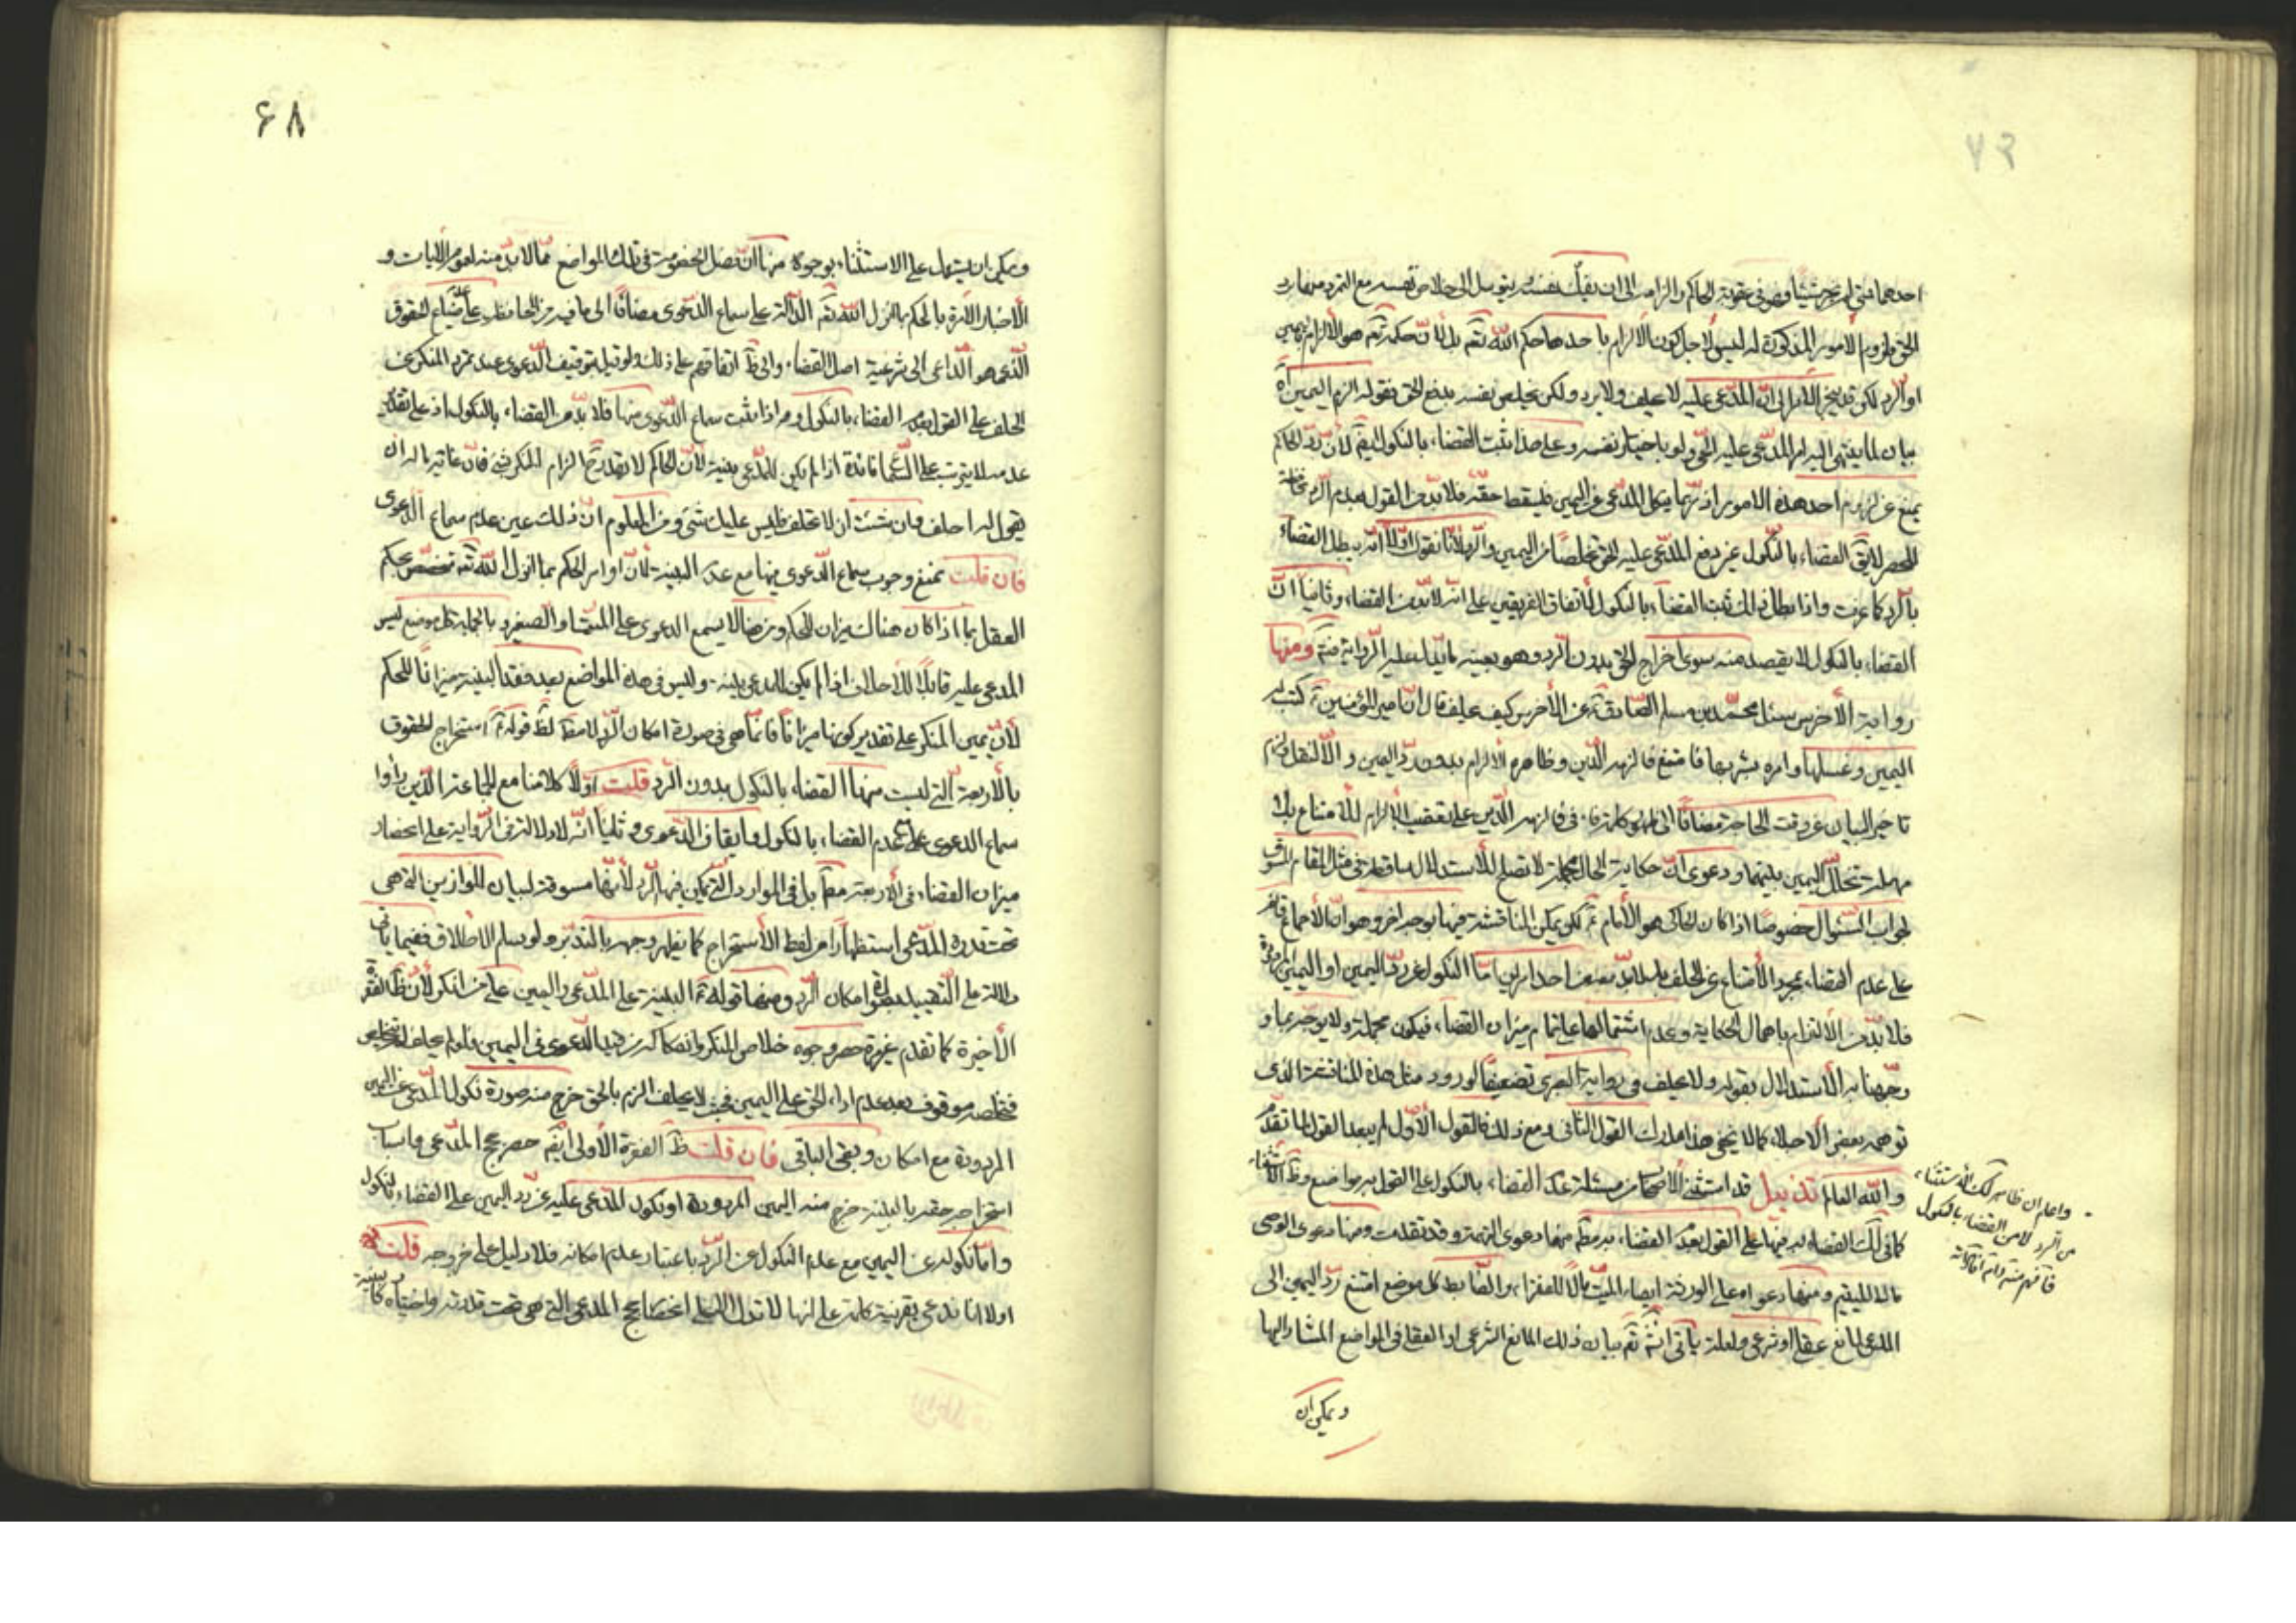 احدهما فمتى لم يخرج شيئا وهو فى عقوبة الحاكم والزامه الى ان يقبل بنفسه يتوسل الى خلاص نفسه مع التمرد منهما برد
الحق ولزوم الامور المذكورة له ليس لاجل كون الالزام باحدهما حكم الله تعم بل لان حكمه تعم هو الالزام باليمين
او الرد لكن قد ينجر الامر الى ان المدعى عليه لا يحلف ولا يرد ولكن يخلص نفسه بدفع الحق فقوله الزم اليمين اه
بيان لما ينتهى اليه امر المدعى عليه الحق ولو باختيار نفسه وعلى هذا يثبت القضاء بالنكول ايضا لان رد الحاكم
يمنع عن لزوم احد هذه الامور اذ ربما ينكل المدعى عن اليمين فيسقط حقه فلا بد من القول بعدم الرد محافظة
للحصر لا يق القضاء بالنكول غير دفع المدعى عليه الحق تخلصا من اليمين والرد لانا نقول اولا انه يبطل القضاء
بالرد كما عرفت واذا بطل ذلك ثبت القضاء بالنكول لاتفاق الفريقين على انه لا بد من القضاء وثانيا ان
القضاء بالنكول لا يقصد منه سوى اخراج الحق بدون الرد وهو بعينه ما يدل عليه الرواية فتم ومنها
رواية الاخرس سئل محمد بن مسلم الصادق ع عن الاخرس كيف يحلف قال ان امير المؤمنين ع كتب له
اليمين وغسلها وامره بشربها فامتنع فالزمه الدين وظاهره الالزام بدون رد اليمين والا لنقل والزم
تاخير البيان عن وقت الحاجة مضافا الى ظهور كلمة فاء فى فالزمه الدين على تعقيب الالزام للامتناع بلا
مهلة تخلل اليمين بينهما ودعوى ان حكاية الحال مجملة لا تصلح للاستدلال ساقطة فى مثل المقام المسوق
لجواب السئوال خصوصا اذا كان الحاكى هو الامام ع لكن يمكن المناقشة فيها بوجه اخر وهو ان الاجماع قائم
على عدم القضاء بمجرد الامتناع عن الحلف بل لا بد معه احد امرين اما النكول عن رد اليمين او اليمين المردودة
فلا بد من الالتزام باهمال الحكاية وعدم اشتمالها على تمام ميزان القضاء فيكون مجملة ولا يوجب ما
وجهنا به الاستدلال بقوله ولا يحلف فى رواية البصرى تضعيفا لورود مثل هذه المناقشة الذى
توهمه بعض الاجلاء كما لا يخفى هذا مدارك القول الثانى ومع ذلك فالقول الاول لم يبعد القول لما تقدم
والله العالم تذييل قد استثنى الاصحاب من مسئلة عدم القضاء بالنكول على القول به مواضع وظ الاستثناء
كما فى لك القضاء به فيها على القول بعدم القضاء به مطم منها دعوى التهمة وقد تقدمت ومنها دعوى الوصى
مالا لليتيم ومنها دعواه على الورثة ايصاء الميت بمال للفقراء والضابط كل موضع امتنع رد اليمين الى
المدعى لمانع عقلى او شرعى ولعله ياتى انش تعم بيان ذلك المانع الشرعى او العقلى فى المواضع المشار اليها
ويمكن ان
واعلم ان ظاهر لك الاستثناء
من الرد لا من القضاء بالنكول
۶۸
ويمكن ان يستدل على الاستثناء بوجوه منها ان فصل الخصومة فى تلك المواضع مما لا بد منه لعموم الايات و
الاخبار الامرة بالحكم بما انزل الله تعم الدالة على سماع الدعوى مضافا الى ما فيه من المحافظة على ضياع الحقوق
الذى هو الداعى الى شرعية اصل القضاء والى ظ اتفاقهم على ذلك ولو قيل بتوقيف الدعوى عند تمرد المنكر عن
الحلف على القول بعدم القضاء بالنكول ومن اذا ثبت سماع الدعوى منها فلا بد من القضاء بالنكول اذ على تقدير
عدمه لا يترتب على السماع فائدة اذا لم يكن للمدعى بينة لان الحاكم لا يقدر ح الزام المنكر بشئ فان غايته بالمر ان
يقول له احلف وان شئت ان لا تحلف فليس عليك شئ ومن المعلوم ان ذلك عين عدم سماع الدعوى
فان قلت نمنع وجوب سماع الدعوى منها مع عدم البينة لان اوامر الحكم بما انزل الله تعم تخصص بحكم
العقل بما اذا كان هناك ميزان للحكم ومن هنا لا يسمع الدعوى على الميت او الصغير وبالجملة كل موضع ليس
المدعى عليه قابلا للاحلاف اذا لم يكن للمدعى بينة وليس فى هذه المواضع بعد فقد البينة ميزانا للحكم
لان يمين المنكر على تقدير كونها ميزانا فانما هى فى صورة امكان الرد لا مط لظ قوله ع استخراج الحقوق
بالاربعة التى ليست منها القضاء بالنكول بدون الرد قلت اولا كلامنا مع الجماعة الذين راوا
سماع الدعوى على عدم القضاء بالنكول وايقاف الدعوى وثانيا انه لا دلالة فى الرواية على انحصار
ميزان القضاء فى الاربعة مطم بل فى الموارد التى يمكن فيها الرد لانها مسوقة لبيان الموازين التى هى
تحت قدرة المدعى استظهارا من لفظ الاستخراج كما يظهر وجهه بالتدبر ولو سلم الاطلاق ففيما ياتى
دلالة على التقييد بصورة امكان الرد ومنها قوله ع البينة على المدعى واليمين على من انكر لان ظ الفقرة
الاخيرة كما تقدم غير مرة حصر وجوه خلاص المنكر وانفكاكه من هذه الدعوى فى اليمين فلو لم يحلف لم يتخلص
فتخلصه موقوف بعد عدم اداء الحق على اليمين فحيث لا يحلف الزم بالحق خرج منه صورة نكول المدعى عن اليمين
المردودة مع امكان وبقى الباقى فان قلت ظ الفقرة الاولى ايضم حصر حجج المدعى واسباب
استخراجه حقه بالبينة خرج منه اليمين المردودة او نكول المدعى عليه عن رد اليمين على القضاء بالنكول
واما نكوله عن اليمين مع عدم النكول عن الرد باعتبار عدم امكانه فلا دليل على خروجه قلت
اولا انا ندعى بقرينة كلمة على انها لا تدل الا على انحصار حجج المدعى التى هى تحت قدرته واختياره كالبينة